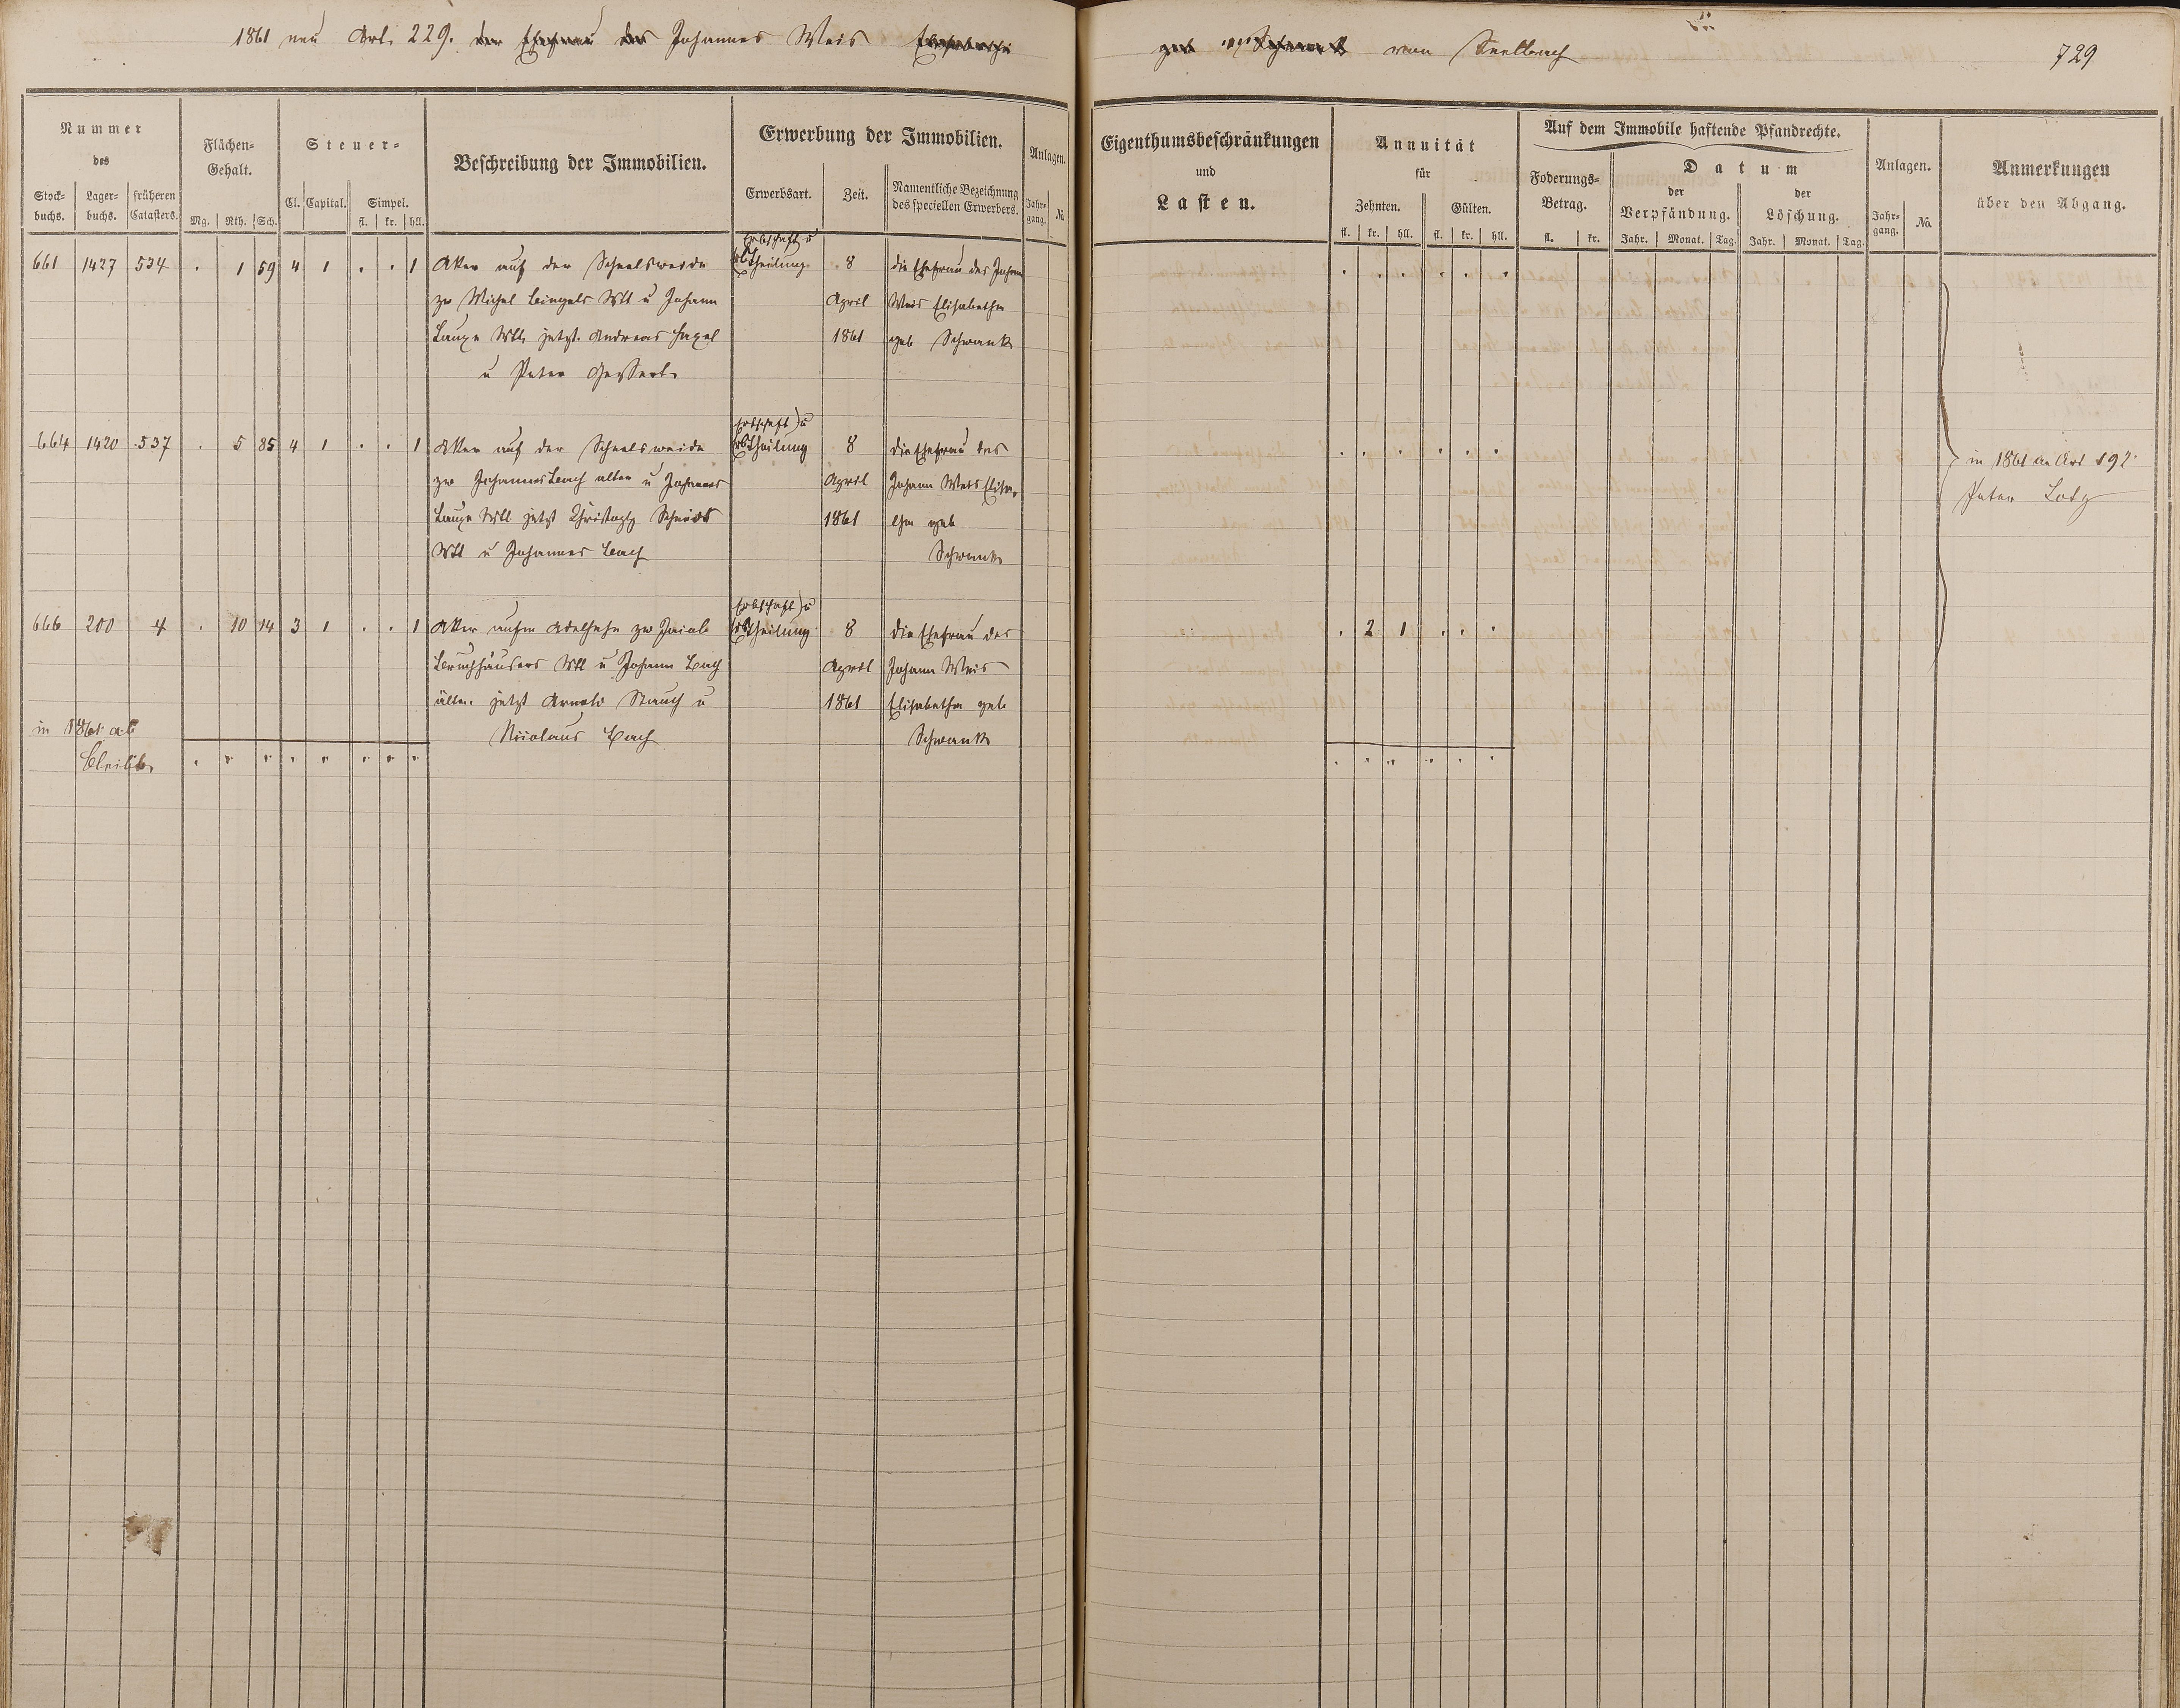 1861 neu Art. 229. der Ehefrau des Johannes Weis Elisabetha
geb Schwank von Seelbach
729
Nummer
des
Stock-buchs. Lager-buchs. früheren Catasters.
Flächen-Gehalt.
Mg. Rth. Sch.
Steuer-
Cl. Capital. Simpel.
fl. kr. hll.
Beschreibung der Immobilien.
Erwerbung der Immobilien.
Erwerbsart. Zeit. Namentliche Bezeichnung des speciellen Erwerbers.
Anlagen.
Jahr-gang. No.
Eigenthumsbeschränkungen
und
Lasten.
Annuität
für
Zehnten. Gülten.
fl. kr. hll. fl. kr. hll.
Auf dem Immobile haftende Pfandrechte.
Foderungs-Betrag.
fl. kr.
Datum
der Verpfändung. der Löschung.
Jahr. Monat. Tag. Jahr. Monat. Tag.
Anlagen.
Jahr-gang. No.
Anmerkungen
über den Abgang.
Erbschaft u
661 1427 534 . 1 59 4 1 . . 1 Acker auf der Scheelsweide Abtheilung. 8 die Ehefrau des Johann
zw Michel Wtb u Johann April Weis Elisabetha
Wtb jetzt Andreas 1861 geb Schwank
u Peter
Erbschaft u
664 1420 537 . 5 85 4 1 . . 1 Acker auf der Scheelsweide Abtheilung 8 die Ehefrau des
zw Johannes Bach alter u Johannes April Johann Weis Elisa-
Wtb jetzt Christoph Schmidt 1861 tha geb
Wtb u Johannes Bach Schwank
in 1861 an Art 192.
Peter Lotz
Erbschaft u
666 200 4 . 10 14 3 1 . . 1 Acker aufm zw Jacob Abtheilung 8 die Ehefrau des . 2 1 . . .
Bruchhäusers Wtb u Johann Bach April Johann Weis
älter. jetzt Arnold Stauch u 1861 Elisabetha geb
Nicolaus Bach Schwank
in 1861 ab
Bleibt